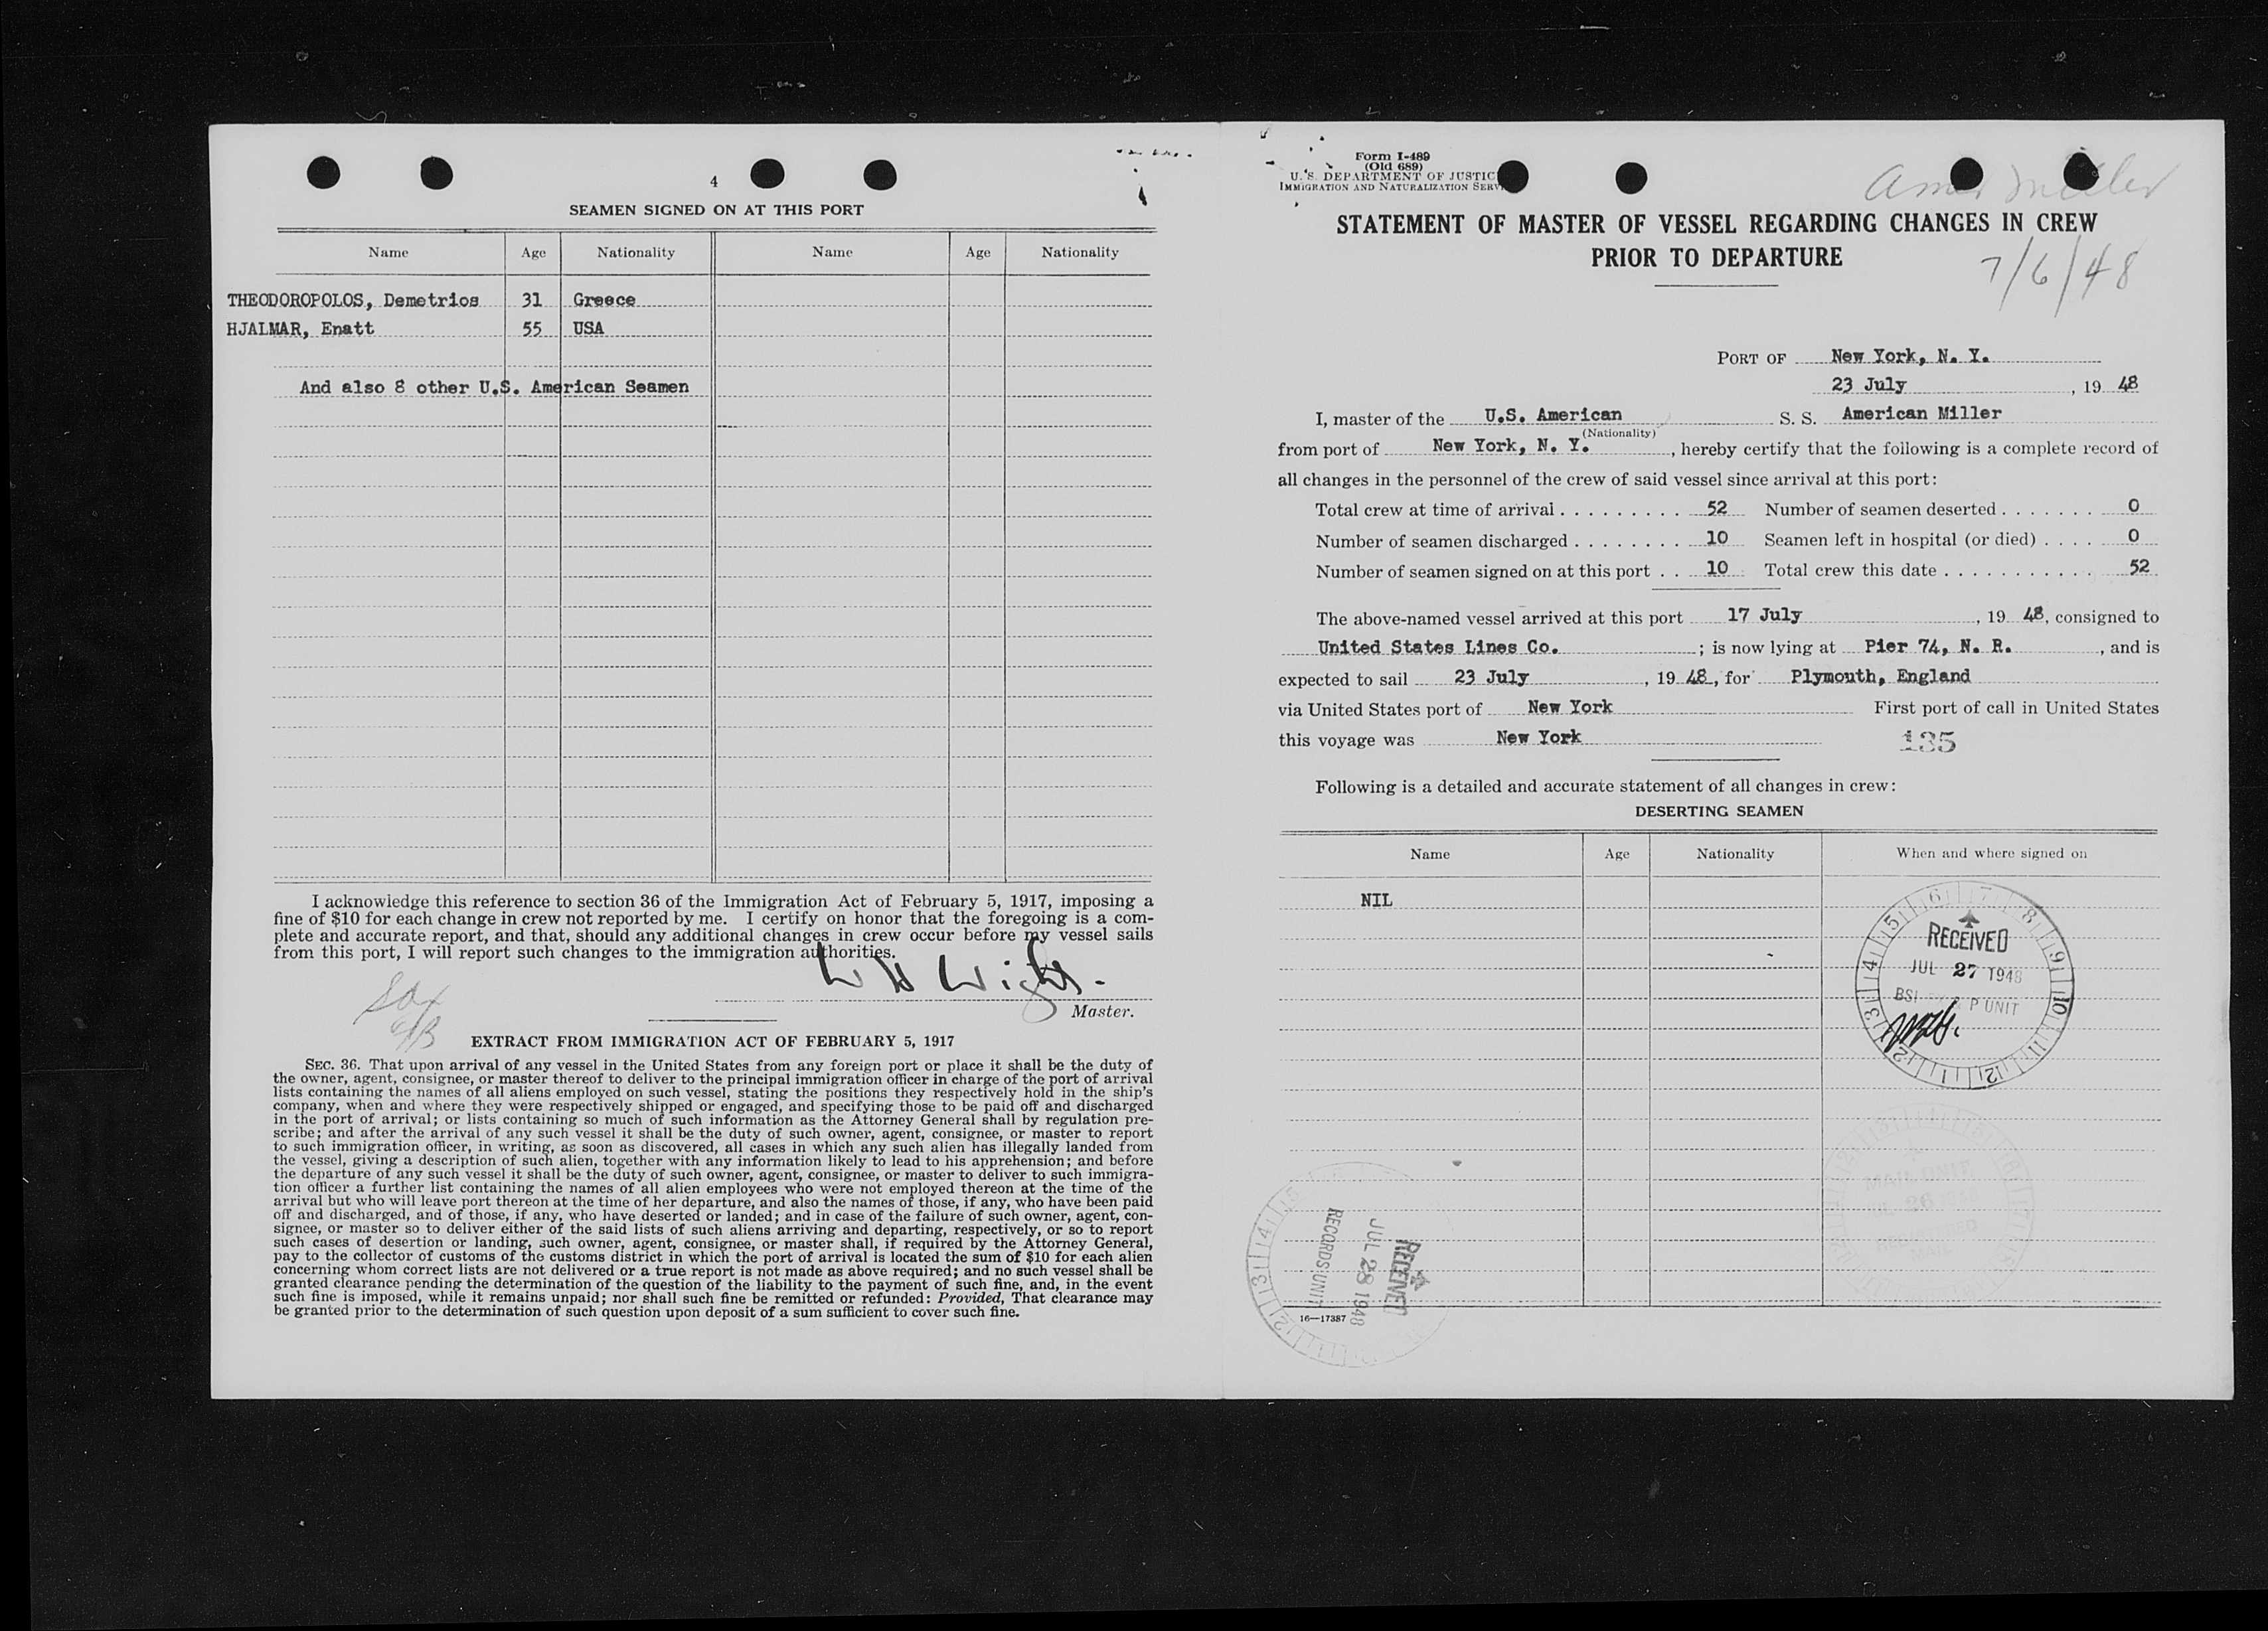 4
SEAMEN SIGNED ON AT THIS PORT
Name Age Nationality Name Age Nationality
THEODOROPOLOS, Demetrios 31 Greece
HJALMAR, Enatt 55 USA
And also 8 other U.S. American Seamen
I acknowledge this reference to section 36 of the Immigration Act of February 5, 1917, imposing a
fine of $10 for each change in crew not reported by me. I certify on honor that the foregoing is a com-
plete and accurate report, and that, should any additional changes in crew occur before my vessel sails
from this port, I will report such changes to the immigration authorities.
Master.
EXTRACT FROM IMMIGRATION ACT OF FEBRUARY 5, 1917
SEC. 36. That upon arrival of any vessel in the United States from any foreign port or place it shall be the duty of
the owner, agent, consignee, or master thereof to deliver to the principal immigration officer in charge of the port of arrival
lists containing the names of all aliens employed on such vessel, stating the positions they respectively hold in the ship's
company, when and where they were respectively shipped or engaged, and specifying those to be paid off and discharged
in the port of arrival; or lists containing so much of such information as the Attorney General shall by regulation pre-
scribe; and after the arrival of any such vessel it shall be the duty of such owner, agent, consignee, or master to report
to such immigration officer, in writing, as soon as discovered, all cases in which any such alien has illegally landed from
the vessel, giving a description of such alien, together with any information likely to lead to his apprehension; and before
the departure of any such vessel it shall be the duty of such owner, agent, consignee, or master to deliver to such immigra-
tion officer a further list containing the names of all alien employees who were not employed thereon at the time of the
arrival but who will leave port thereon at the time of her departure, and also the names of those, if any, who have been paid
off and discharged, and of those, if any, who have deserted or landed; and in case of the failure of such owner, agent, con-
signee, or master so to deliver either of the said lists of such aliens arriving and departing, respectively, or so to report
such cases of desertion or landing, such owner, agent, consignee, or master shall, if required by the Attorney General,
pay to the collector of customs of the customs district in which the port of arrival is located the sum of $10 for each alien
concerning whom correct lists are not delivered or a true report is not made as above required; and no such vessel shall be
granted clearance pending the determination of the question of the liability to the payment of such fine, and, in the event
such fine is imposed, while it remains unpaid; nor shall such fine be remitted or refunded: Provided, That clearance may
be granted prior to the determination of such question upon deposit of a sum sufficient to cover such fine.
Form I-489
(Old 689)
U. S. DEPARTMENT OF JUSTIC
IMMIGRATION AND NATURALIZATION SERV
Amer Miller
STATEMENT OF MASTER OF VESSEL REGARDING CHANGES IN CREW
PRIOR TO DEPARTURE
7/6/48
PORT OF New York, N. Y.
23 July, 19 48
I, master of the U.S. American S. S. American Miller
(Nationality)
from port of New York, N. Y., hereby certify that the following is a complete record of
all changes in the personnel of the crew of said vessel since arrival at this port:
Total crew at time of arrival 52 Number of seamen deserted 0
Number of seamen discharged 10 Seamen left in hospital (or died) 0
Number of seamen signed on at this port 10 Total crew this date 52
The above-named vessel arrived at this port 17 July, 19 48, consigned to
United States Lines Co.; is now lying at Pier 74, N. R., and is
expected to sail 23 July, 19 48, for Plymouth, England
via United States port of New York First port of call in United States
this voyage was New York 135
Following is a detailed and accurate statement of all changes in crew:
DESERTING SEAMEN
Name Age Nationality When and where signed on
NIL
RECEIVED
JUL 27 1948
BSI P UNIT
MAIL UNIT
26
RECEIVED
JUL 28 1948
RECORDS UNIT
16—17387